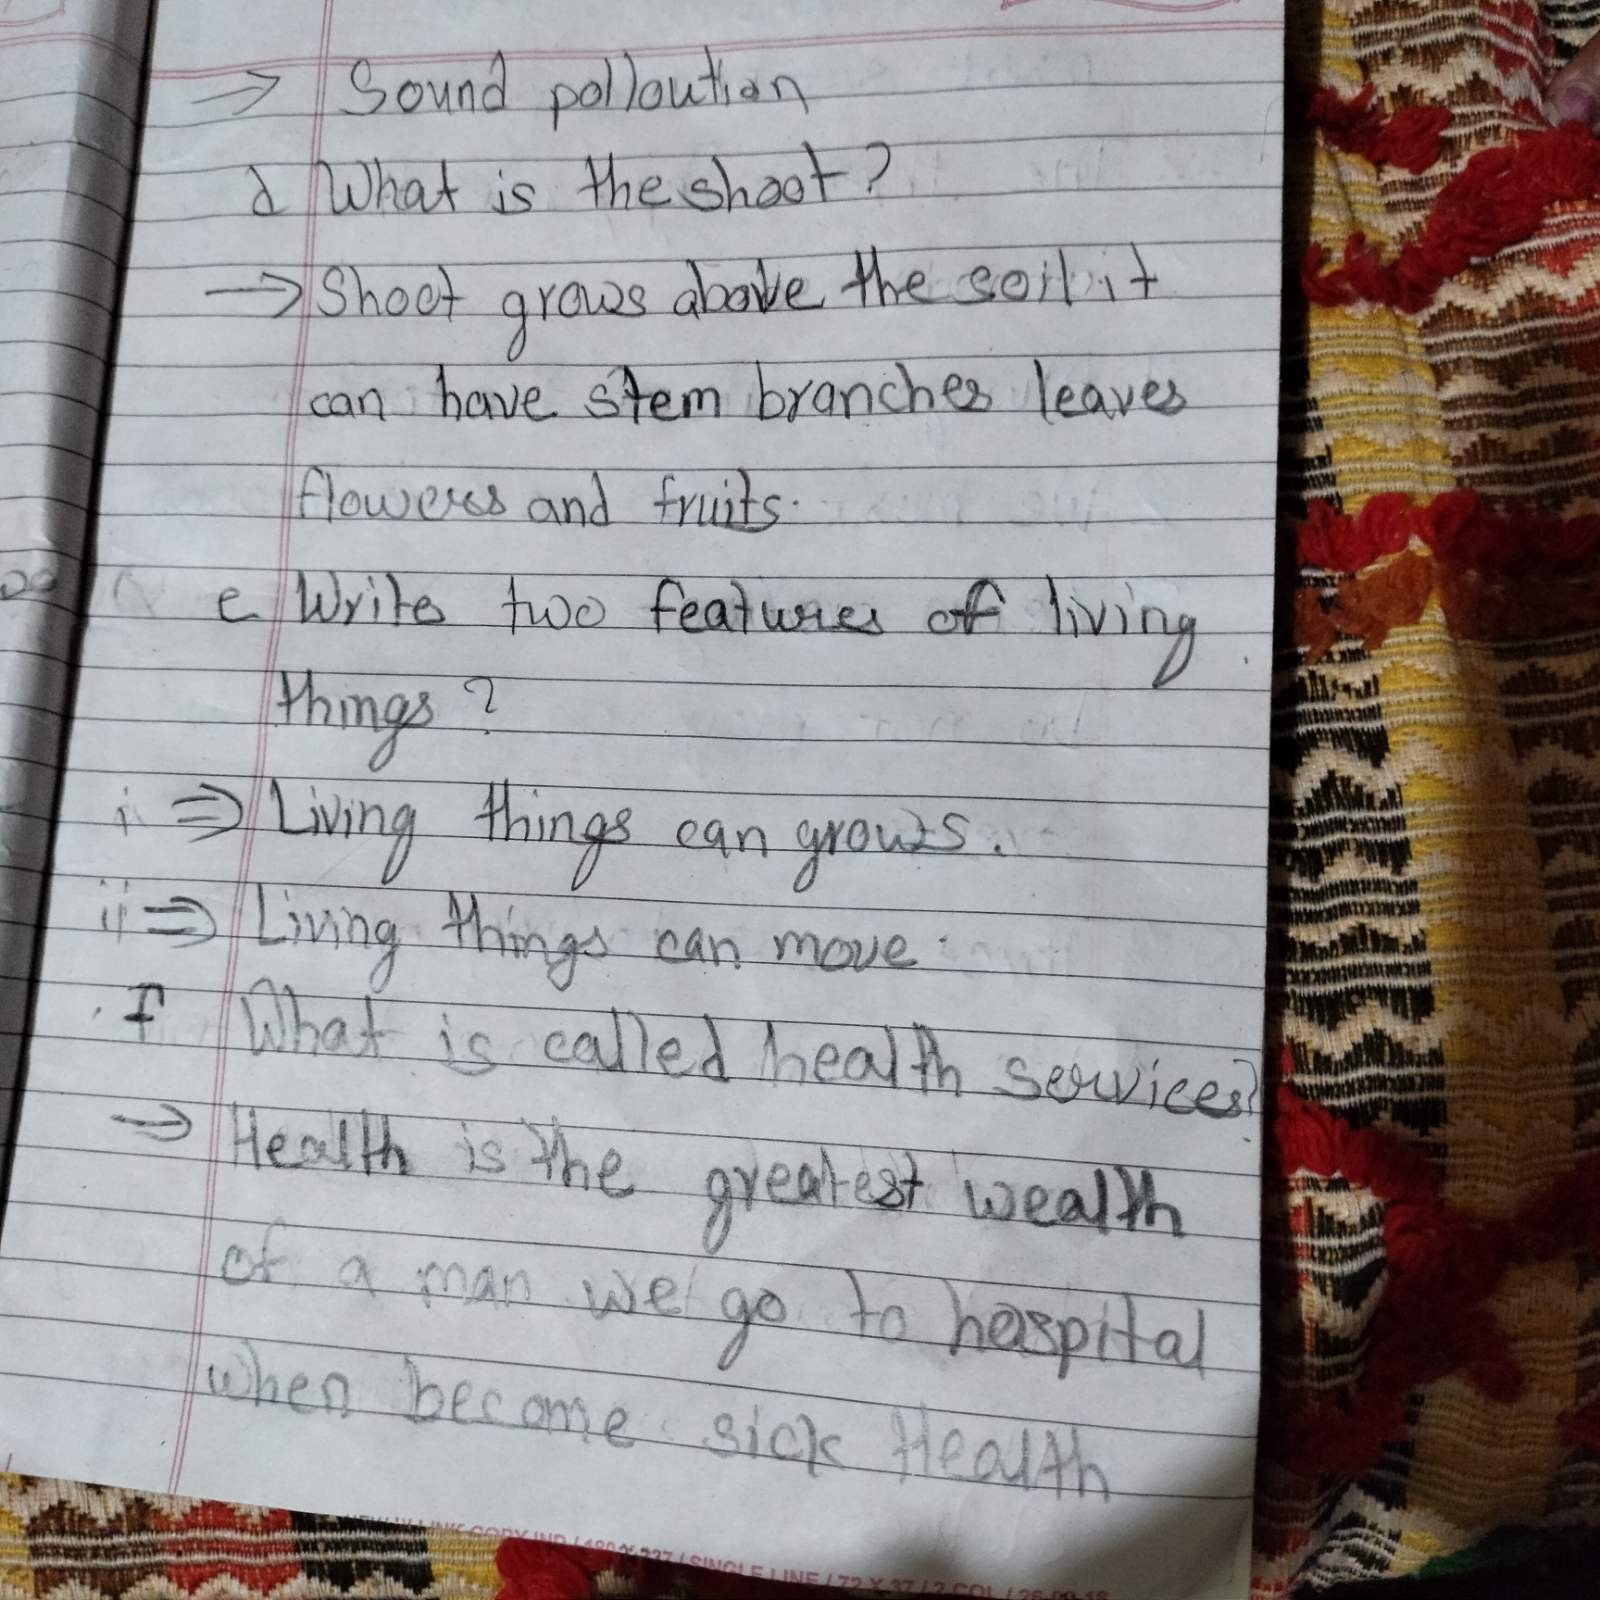 ⇒ Sound polloution
d What is the shoot?
→ Shoot grows above the soil it
can have stem branches leaves
flowers and fruits.
e Write two features of living
things?
i ⇒ Living things can grows.
ii ⇒ Living things can move.
f What is called health services?
⇒ Health is the greatest wealth
of a man we go to hospital
when become sick Health